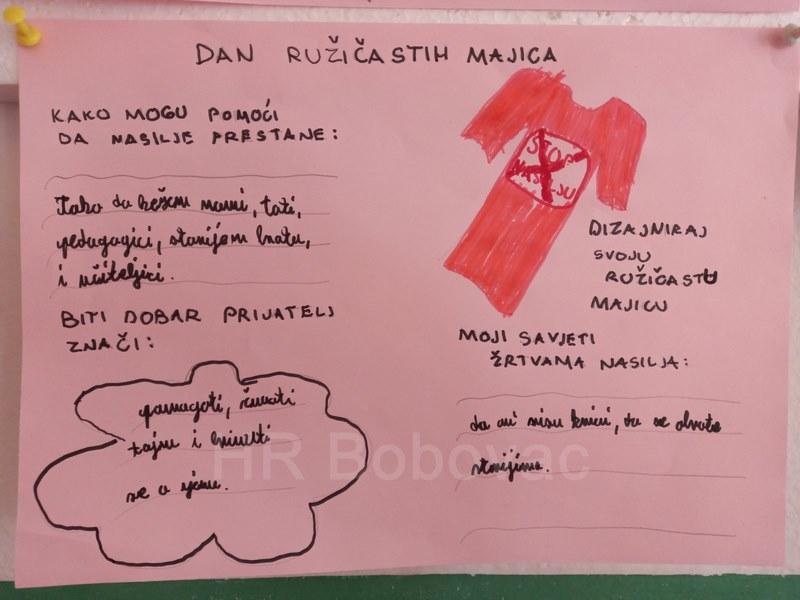 DAN RUŽIČASTIH MAJICA
KAKO MOGU POMOĆI
DA NASILJE PRESTANE:
Tako da kažem mami, tati,
pedagogici, starijem bratu,
i učiteljici.
BITI DOBAR PRIJATELJ
ZNAČI:
pomagati, čuvati
tajnu i brinuti
se o njemu.
STOP
NASILJU
DIZAJNIRAJ
SVOJU
RUŽIČASTU
MAJICU
MOJI SAVJETI
ŽRTVAMA NASILJA:
da oni nisu krivi, da se obrate
starijima.
HR Bobovac